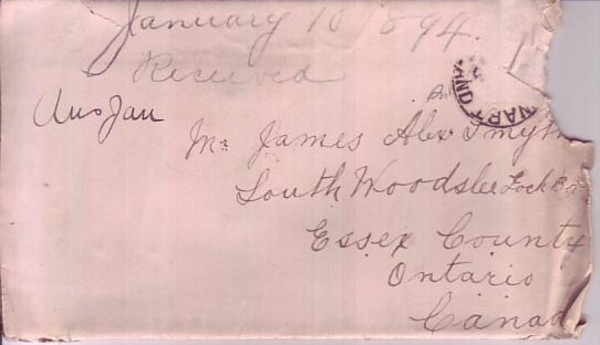 January 18 1894.
Received
Ans Jan
Mr James Alex Smyth
South Woodslee Lock Box
Essex County
Ontario
Canad